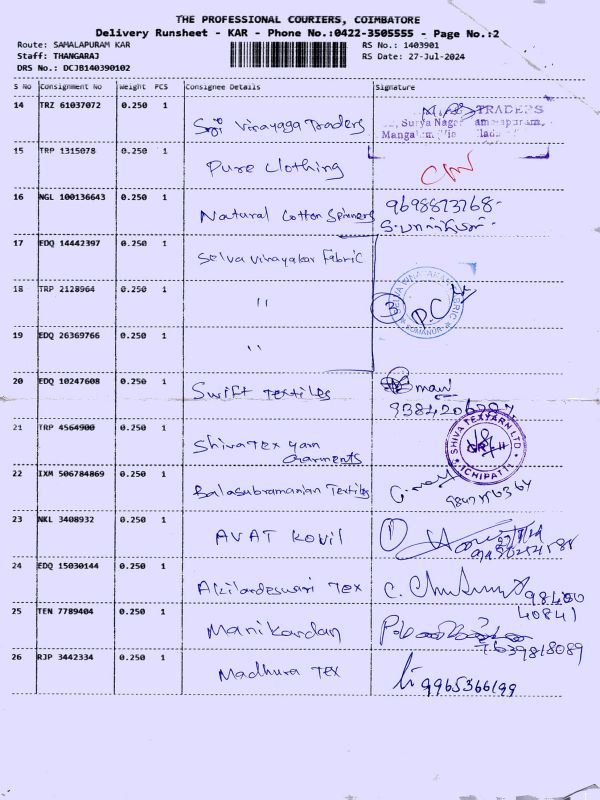 THE PROFESSIONAL COURIERS, COIMBATORE
Delivery Runsheet - KAR - Phone No.:0422-3505555 - Page No.:2
Route: SAMALAPURAM KAR
RS No.: 1403901
Staff: THANGARAJ
RS Date: 27-Jul-2024
DRS No.: DCJB140390102
S No Consignment No Weight PCS Consignee Details Signature
14 TRZ 61037072 0.250 1 Sri Vinayaga Traders
TRADERS
Surya Nagar
Mangalam
15 TRP 1315078 0.250 1 Pure Clothing
16 NGL 100136643 0.250 1 Natural Cotton Spinners
17 EDQ 14442397 0.250 1 Selva Vinayakar Fabric
18 TRP 2128964 0.250 1 "
3
SOMANUR
19 EDQ 26369766 0.250 1 "
20 EDQ 10247608 0.250 1 Swift Textiles
mani
21 TRP 4564900 0.250 1 Shiva Tex yarn
Garments
SHIVA TEXYARN LTD
22 IXM 506784869 0.250 1 Balasubramanian Textiles
23 NKL 3408932 0.250 1 AVAT Kovil
1
24 EDQ 15030144 0.250 1 Akilandeswari Tex
98400
40841
25 TEN 7789404 0.250 1 Manikandan
7639818089
26 RJP 3442334 0.250 1 Madhura Tex
9965366199